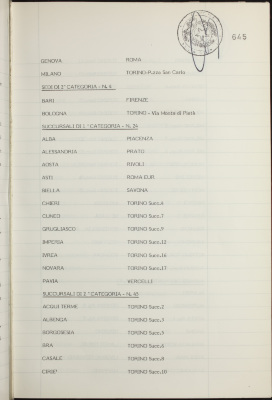 645
GENOVA ROMA
MILANO TORINO-P.zza San Carlo
SEDI DI 2^ CATEGORIA - N. 4
BARI FIRENZE
BOLOGNA TORINO - Via Monte di Pietà
SUCCURSALI DI 1^ CATEGORIA - N. 24
ALBA PIACENZA
ALESSANDRIA PRATO
AOSTA RIVOLI
ASTI ROMA EUR
BIELLA SAVONA
CHIERI TORINO Succ.6
CUNEO TORINO Succ.7
GRUGLIASCO TORINO Succ.9
IMPERIA TORINO Succ.12
IVREA TORINO Succ.16
NOVARA TORINO Succ.17
PAVIA VERCELLI
SUCCURSALI DI 2^ CATEGORIA - N. 40
ACQUI TERME TORINO Succ.2
ALBENGA TORINO Succ.3
BORGOSESIA TORINO Succ.5
BRA TORINO Succ.6
CASALE TORINO Succ.8
TORINO Succ.10